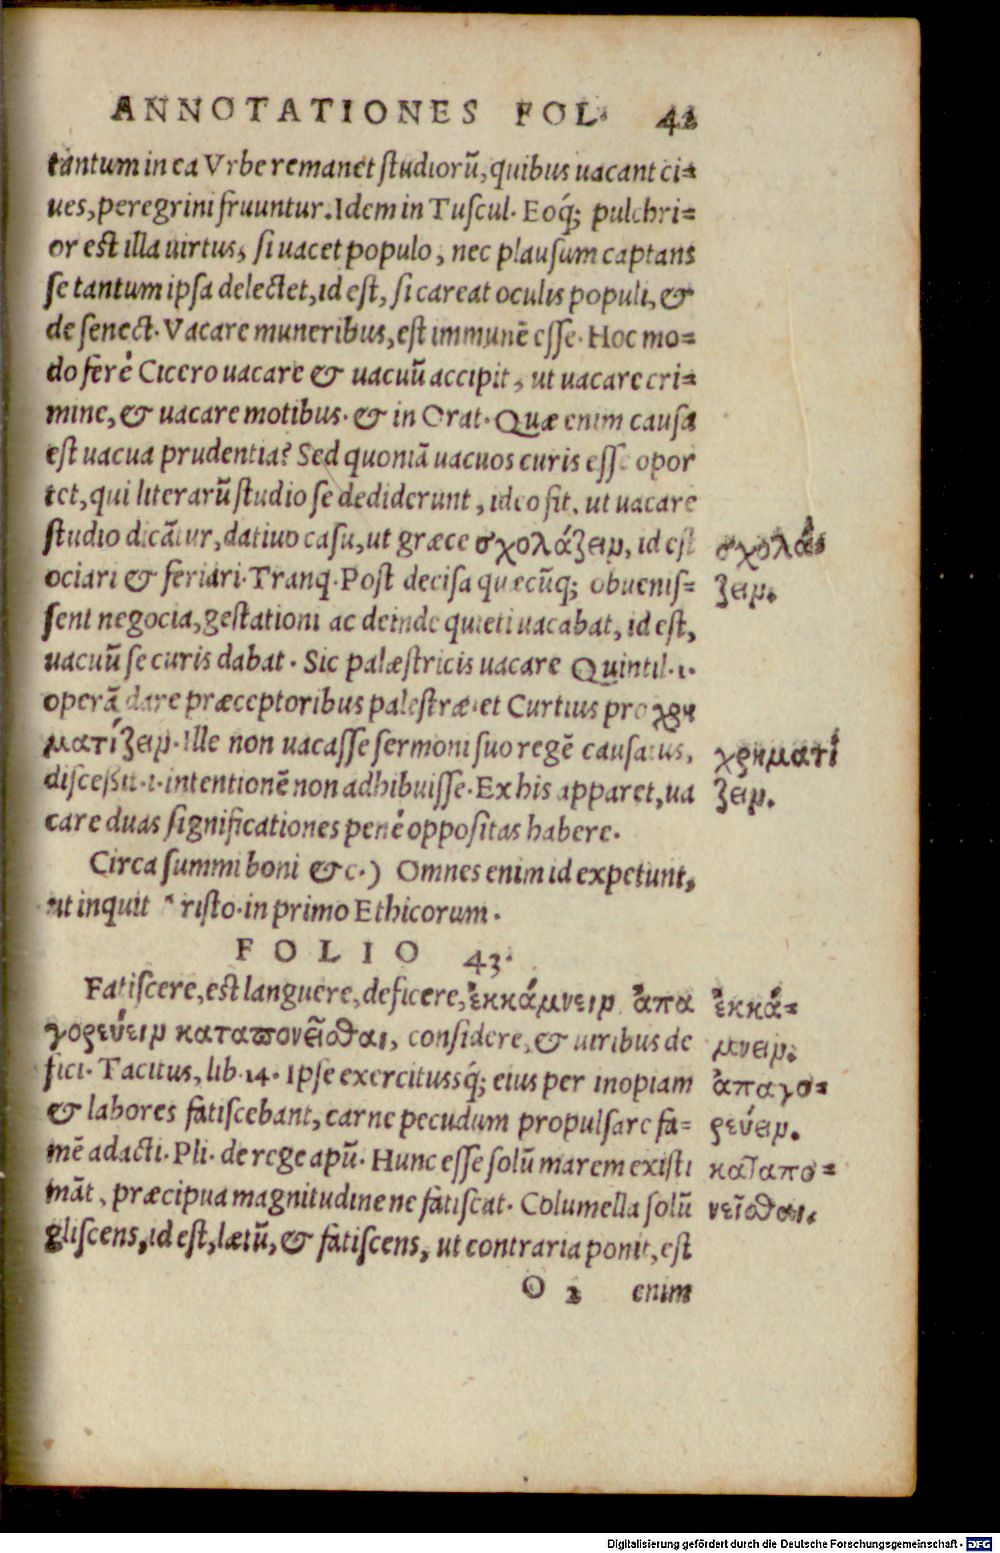 ANNOTATIONES FOL. 42
tantum in ea Vrbe remanet studiorũ, quibus uacant ci=
ues, peregrini fruuntur. Idem in Tuscul. Eoq́; pulchri=
or est illa uirtus, si uacet populo, nec plausum captans
se tantum ipsa delectet, id est, si careat oculis populi, &
de senect. Vacare muneribus, est immunẽ esse. Hoc mo=
do ferè Cicero uacare & uacuũ accipit, ut uacare cri=
mine, & uacare motibus. & in Orat. Quæ enim causa
est uacua prudentia? Sed quoniã uacuos curis esse opor
tet, qui literarũ studio se dediderunt, ideo fit, ut uacare
studio dicãtur, datiuo casu, ut græce σχολάζειν, id est
σχολά=
ociari & feriari. Tranq. Post decisa quæcũq; obuenis=
ζειν.
sent negocia, gestationi ac deinde quieti uacabat, id est,
uacuũ se curis dabat. Sic palæstricis uacare Quintil. i.
operã dare præceptoribus palestræ. et Curtius pro χρη
ματίζειν. Ille non uacasse sermoni suo regẽ causatus,
χρηματί
discessit. i. intentionẽ non adhibuisse. Ex his apparet, ua
ζειν.
care duas significationes penè oppositas habere.
Circa summi boni &c.) Omnes enim id expetunt,
ut inquit risto. in primo Ethicorum.
FOLIO 43.
Fatiscere, est languere, deficere, ἐκκάμνειν, ἀπα
ἐκκά=
γορεύειν καταπονεῖσθαι, considere, & uiribus de
μνειν.
fici. Tacitus, lib. 14. Ipse exercitussq́; eius per inopiam
ἀπαγο=
& labores fatiscebant, carne pecudum propulsare fa=
ρεύειν.
mẽ adacti. Pli. de rege apũ. Hunc esse solũ marem existi
καταπο=
mãt, præcipua magnitudine ne fatiscat. Columella solũ
νεῖσθαι,
gliscens, id est, lætũ, & fatiscens, ut contraria ponit, est
O 2 enim
Digitalisierung gefördert durch die Deutsche Forschungsgemeinschaft - DFG